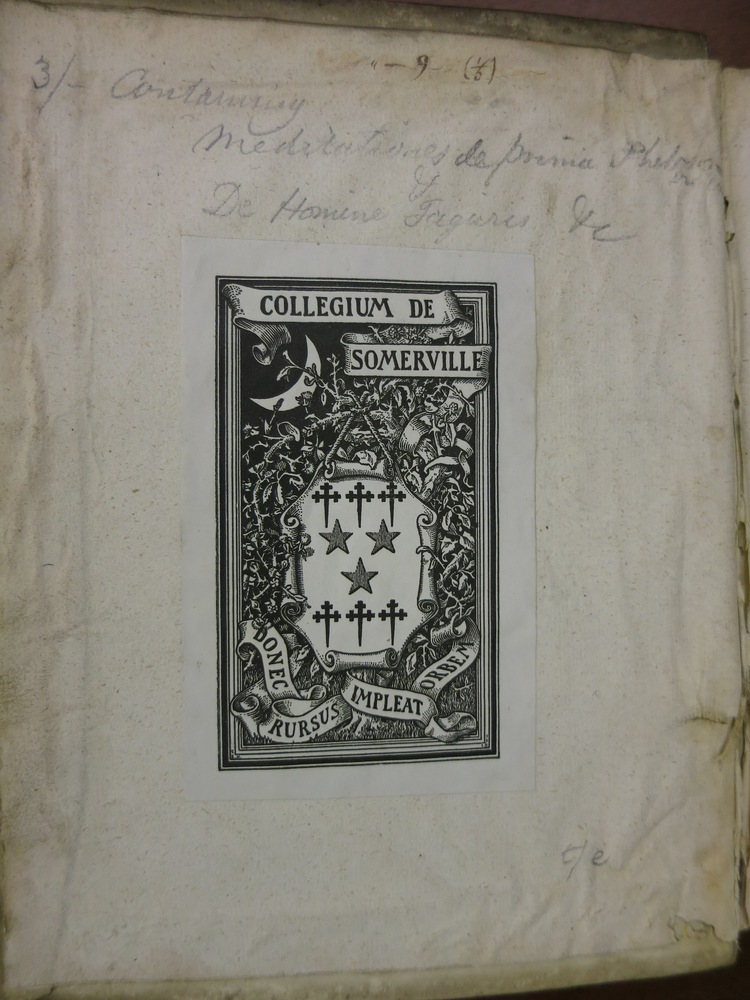 " — 9 (⅙)
3/- Containing
Meditationes de prima Philosop
&
De Homine Figuris &c
COLLEGIUM DE
SOMERVILLE
DONEC
RURSUS
IMPLEAT
ORBEM
c/e